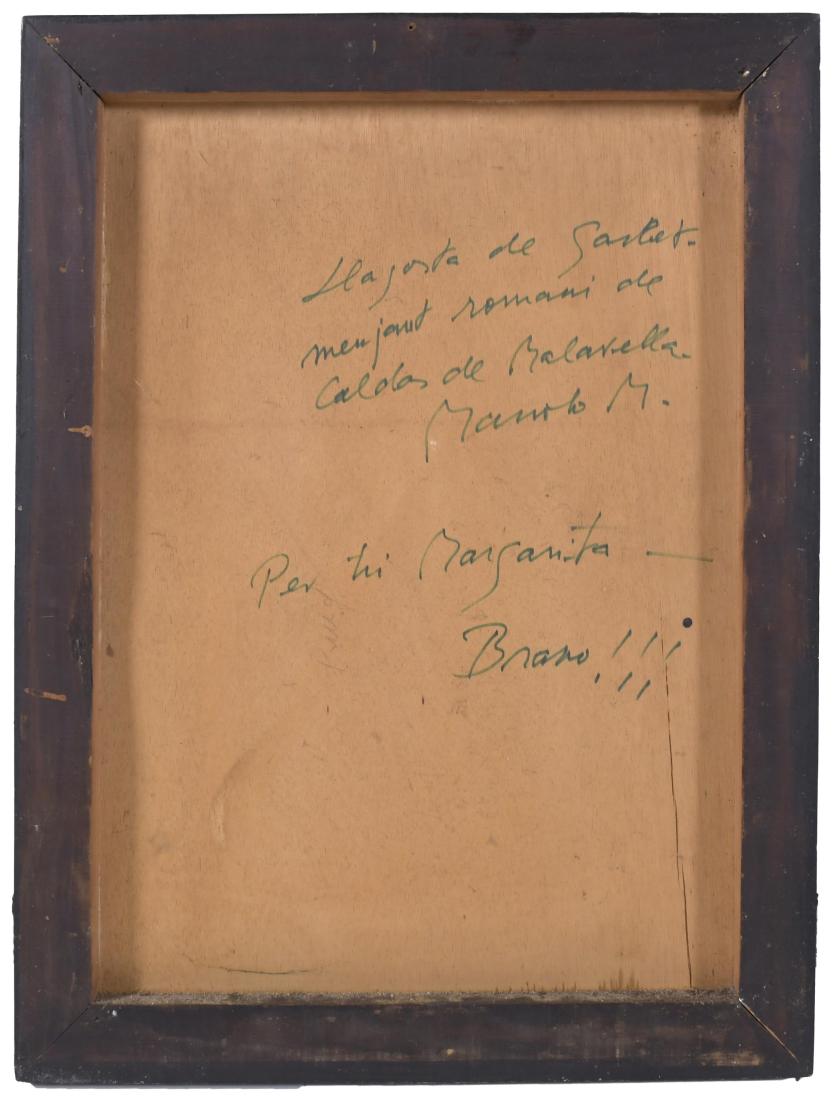 Llagosta de Garbet.
menjant romani de
Caldas de Malavella.
Manolo M.
Per tu Margarita —
Bravo!!!
!!